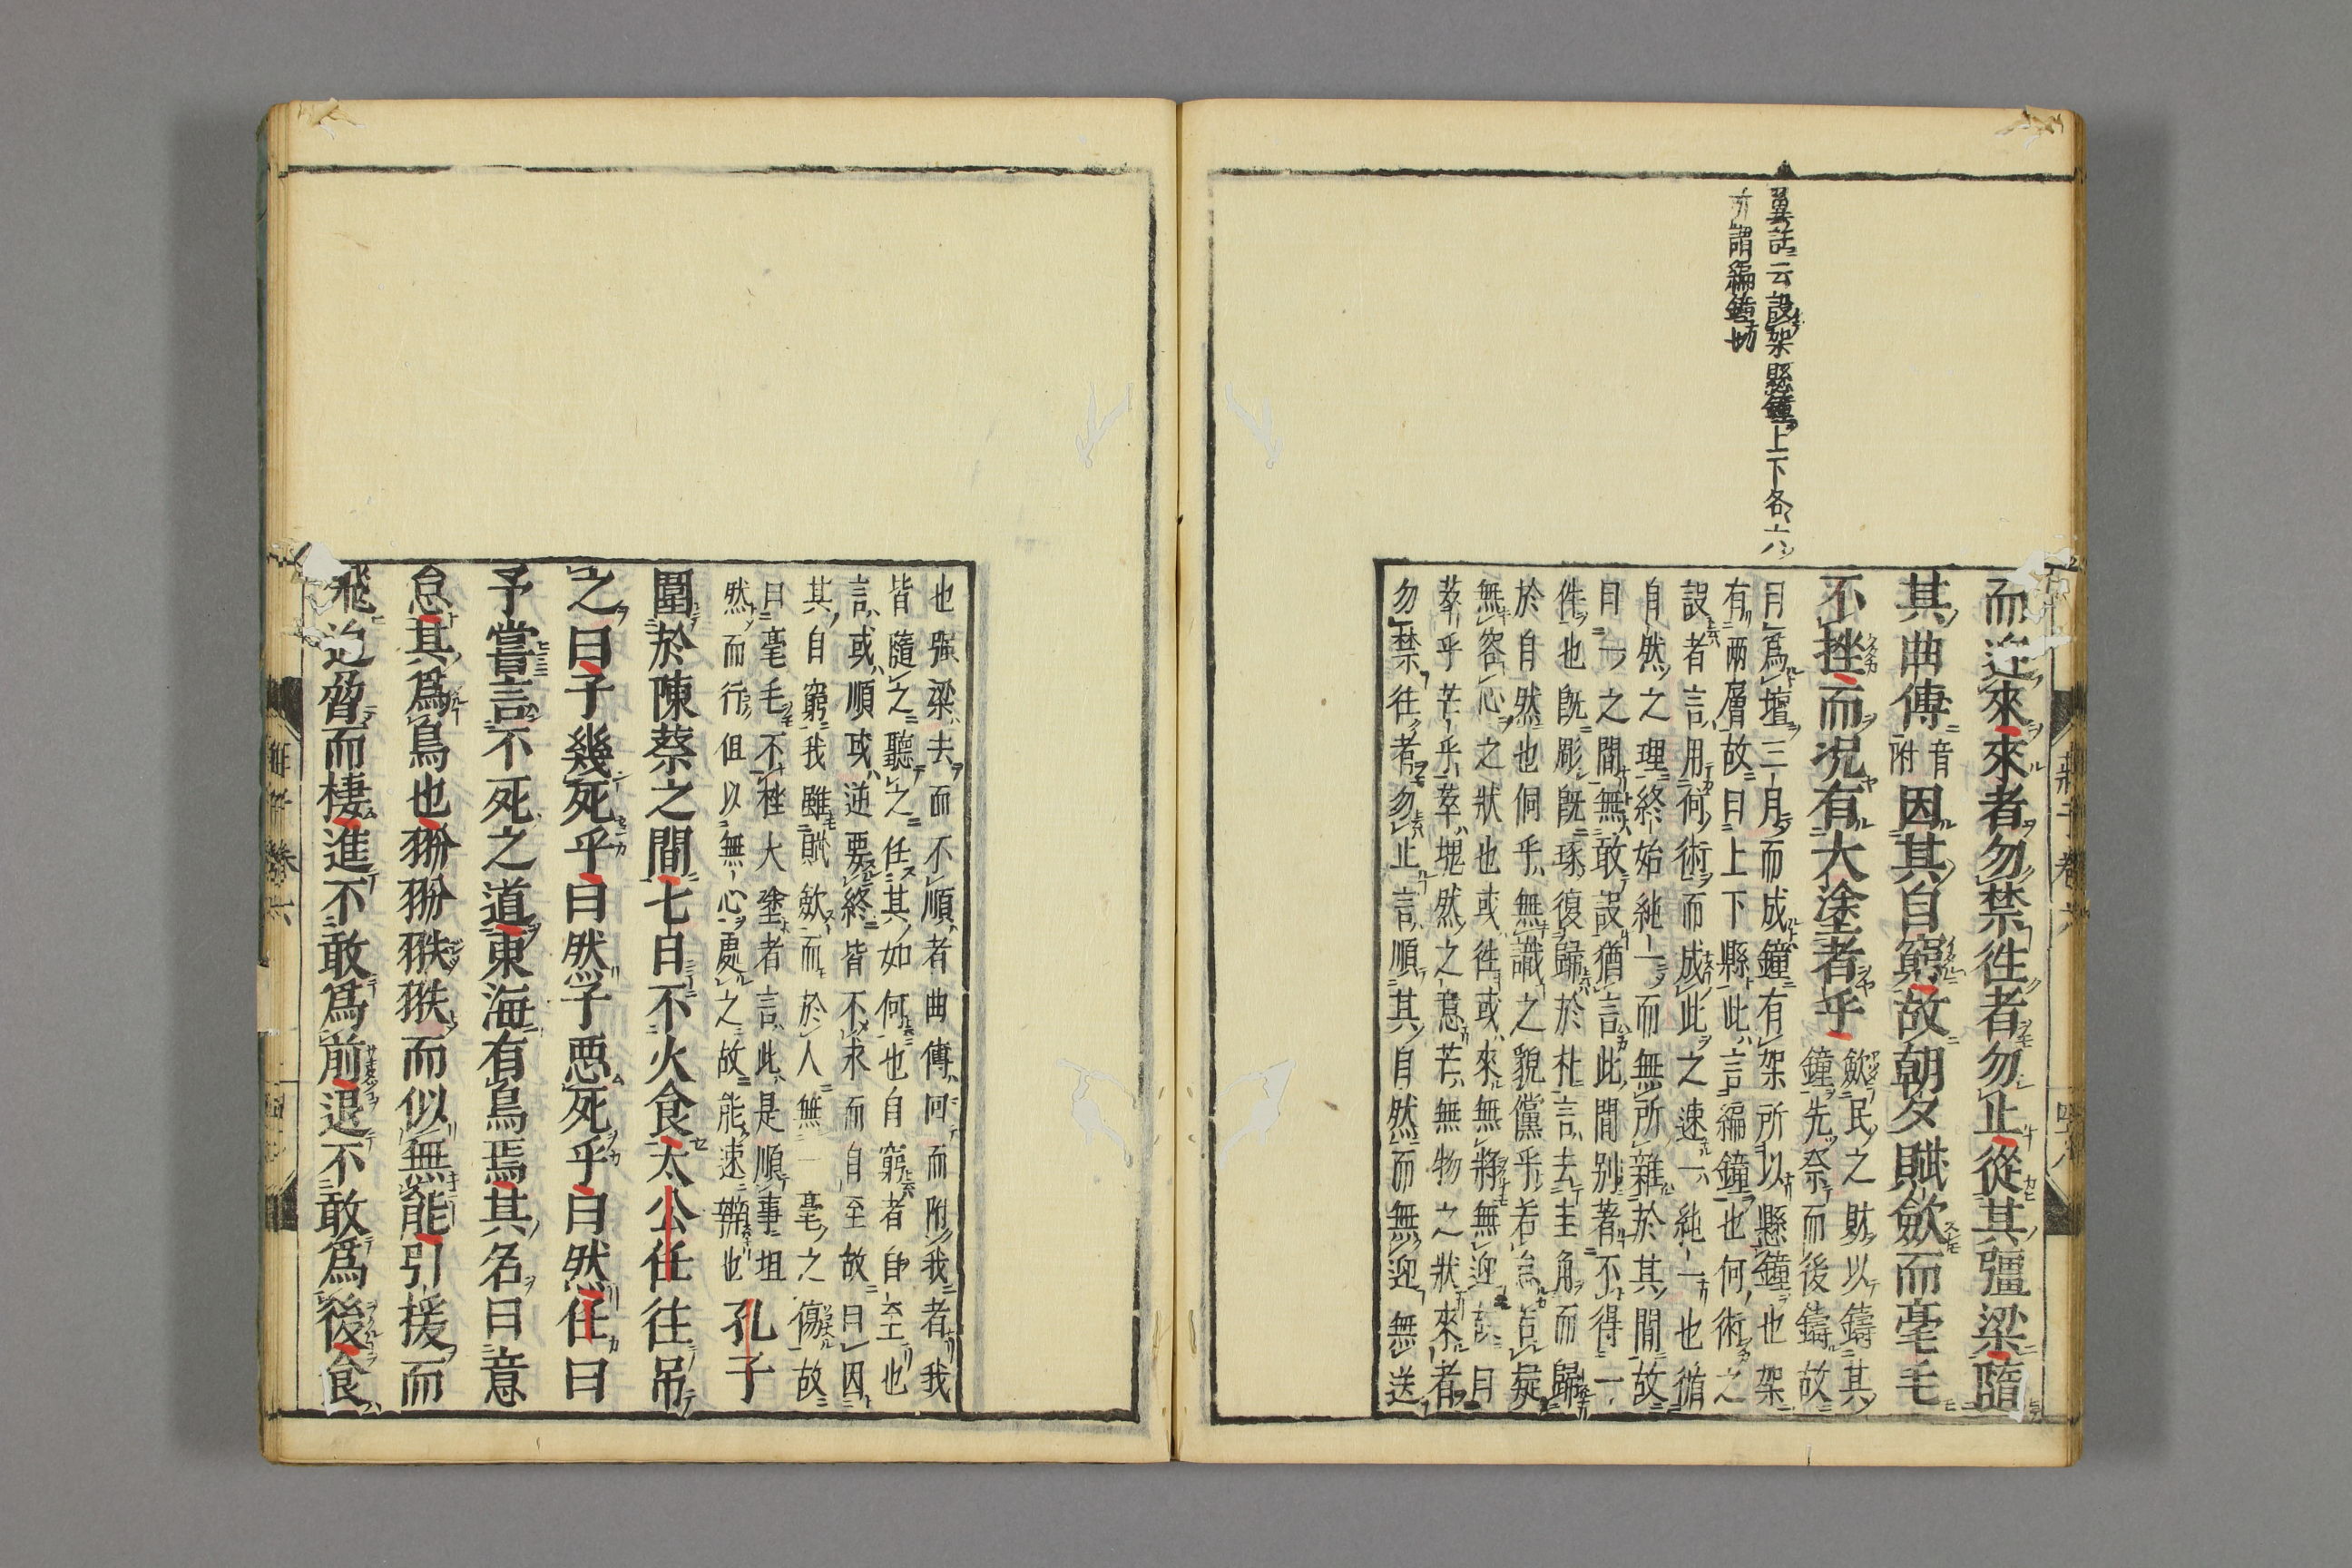 翼註云設架縣鐘上下各六
所謂編鐘也
而迎來來者勿禁徃者勿止從其彊梁隨
其曲傳音附因其自窮故朝夕賦歛而毫毛
不挫而况有大塗者乎歛民之財以鑄其
鐘先祭而後鑄故
曰爲壇三月而成鐘有架所以縣鐘也架
有兩層故曰上下縣此言編鐘也何術之
設者言用何術而成此之速一純一也循
自然之理終始純一而無所雜於其間故
曰一之間無敢設猶言此間别著不得一
件也旣彫旣琢復歸於朴言去圭角而歸
於自然也侗乎無識之貌儻乎若怠若疑
無容心之狀也或徃或來無將無迎
萃乎芒乎萃塊然之意芒無物之狀來者
勿禁往者勿止言順其自然而無迎無送
也彊梁去而不順者曲傳回而附我者我
皆隨之聽之任其如何也自窮者自至也
言或順或逆要終皆不求而自至故曰因
其自窮我雖賦歛而於人無一毫之傷故
曰毫毛不挫大塗者言此是順事坦
然而行但以無心處之故能速辦也孔子
圍於陳蔡之間七日不火食太公任往吊
之曰子幾死乎曰然子惡死乎曰然任曰
予嘗言不死之道東海有鳥焉其名曰意
怠其爲鳥也翂翂翐翐而似無能引援而
飛迫脅而棲進不敢爲前退不敢爲後食
莊子卷六